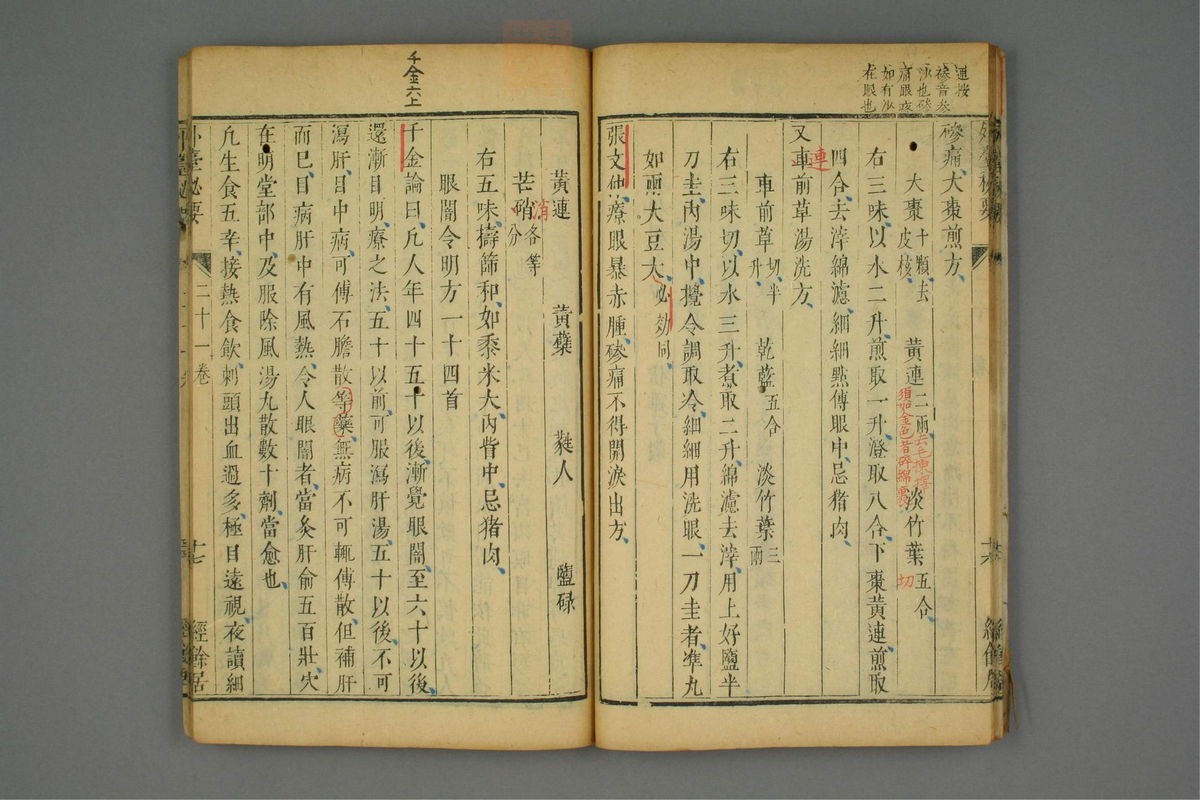 磣痛大棗煎方
大棗十顆去皮核 黃連二兩去毛 淡竹葉五合切
右三味以水二升煎取一升澄取八合下棗黃連煎取
四合去滓綿濾細細點傅眼中忌猪肉
又車前草湯洗方
連
車前草切半升 乾藍五合 淡竹葉三兩
右三味切以水三升煮取二升綿濾去滓用上好鹽半
刀圭內湯中攪令調取冷細細用洗眼一刀圭者準丸
如兩大豆大必効同
張文仲療眼暴赤腫磣痛不得開淚出方
黃連 黃蘗 蕤人 鹽碌
芒硝各等分
消
右五味擣篩和如黍米大內眥中忌猪肉
眼闇令明方一十四首
千金六上
千金論曰凡人年四十五十以後漸覺眼闇至六十以後
還漸目明療之法五十以前可服瀉肝湯五十以後不可
瀉肝目中病可傅石膽散等藥無病不可輒傅散但補肝
而已目病肝中有風熱令人眼闇者當灸肝俞五百壯穴
在明堂部中及服除風湯丸散數十劑當愈也
凡生食五辛接熱食飲刺頭出血過多極目遠視夜讀細
外臺秘要
二十一卷
十七
經餘居